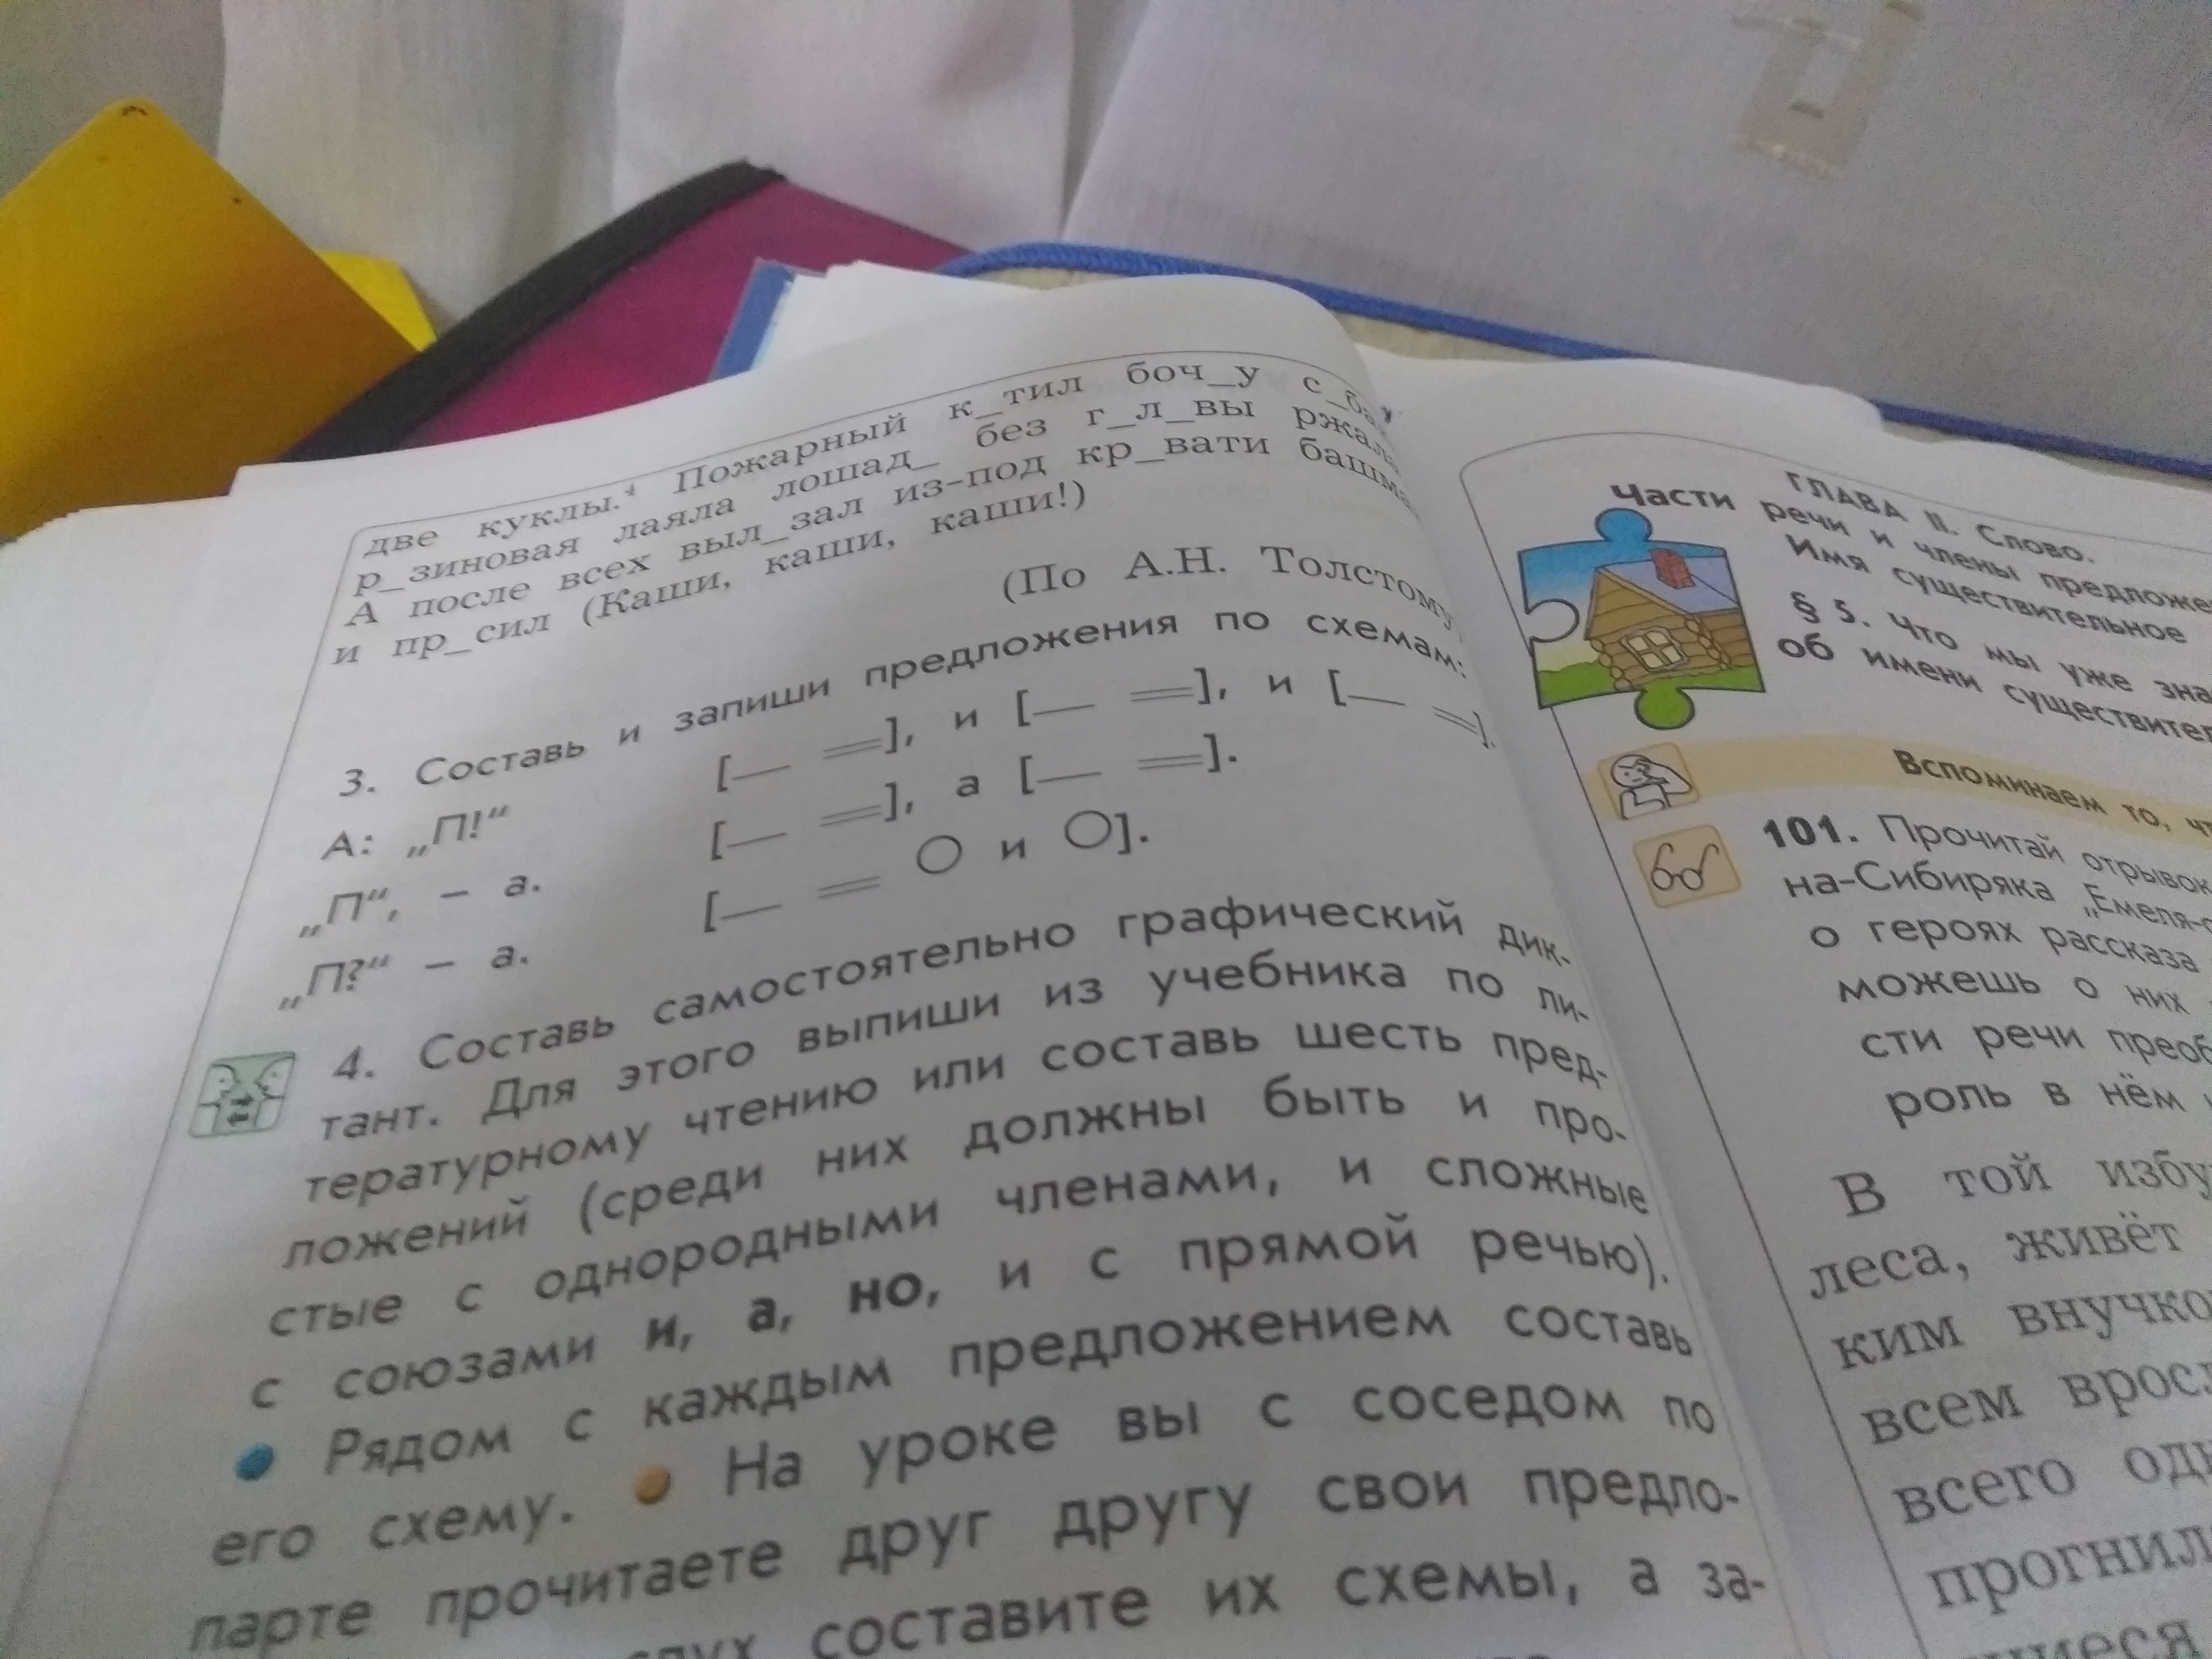 две куклы. Пожарный к_тил боч_у
р_зиновая лаяла лошад_ без г_л_вы
А после всех выл_зал из-под кр_вати
и пр_сил (Каши, каши, каши!)
(По А.Н. Толстому
3. Составь и запиши предложения по схемам:
А: „П!“ [— =], и [— =], и [— =].
„П“, – а. [— =], а [— =].
„П?“ – а. [— = О и О].
4. Составь самостоятельно графический дик-
тант. Для этого выпиши из учебника по ли-
тературному чтению или составь шесть пред-
ложений (среди них должны быть и про-
стые с однородными членами, и сложные
с союзами и, а, но, и с прямой речью).
Рядом с каждым предложением составь
его схему. На уроке вы с соседом по
парте прочитаете друг другу свои предло-
составите их схемы, а за-
ГЛАВА II. Слово.
Части речи и члены
Имя существительное
§ 5. Что мы уже
об имени
Вспоминаем то,
101. Прочитай отрывок
на-Сибиряка
о героях рассказа
можешь о них
сти речи
роль в нём
В той
леса, живёт
ким
всем
всего